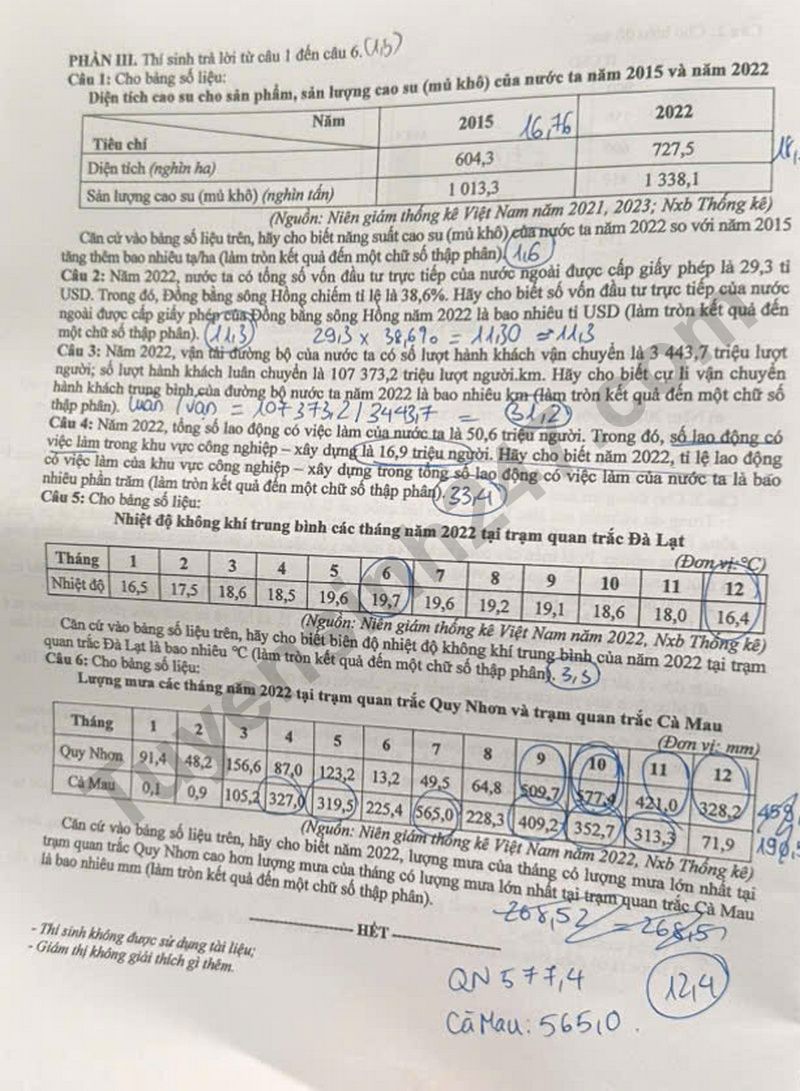 PHẦN III. Thí sinh trả lời từ câu 1 đến câu 6. (1,5)
Câu 1: Cho bảng số liệu:
Diện tích cao su cho sản phẩm, sản lượng cao su (mủ khô) của nước ta năm 2015 và năm 2022
Năm 2015 16,76 2022
Tiêu chí
Diện tích (nghìn ha) 604,3 727,5 18,
Sản lượng cao su (mủ khô) (nghìn tấn) 1 013,3 1 338,1
(Nguồn: Niên giám thống kê Việt Nam năm 2021, 2023; Nxb Thống kê)
Căn cứ vào bảng số liệu trên, hãy cho biết năng suất cao su (mủ khô) của nước ta năm 2022 so với năm 2015
tăng thêm bao nhiêu tạ/ha (làm tròn kết quả đến một chữ số thập phân). 1,6
Câu 2: Năm 2022, nước ta có tổng số vốn đầu tư trực tiếp của nước ngoài được cấp giấy phép là 29,3 tỉ
USD. Trong đó, Đồng bằng sông Hồng chiếm tỉ lệ là 38,6%. Hãy cho biết số vốn đầu tư trực tiếp của nước
ngoài được cấp giấy phép của Đồng bằng sông Hồng năm 2022 là bao nhiêu tỉ USD (làm tròn kết quả đến
một chữ số thập phân). (11,3) 29,3 x 38,6% = 11,30 => 11,3
Câu 3: Năm 2022, vận tải đường bộ của nước ta có số lượt hành khách vận chuyển là 3 443,7 triệu lượt
người; số lượt hành khách luân chuyển là 107 373,2 triệu lượt người.km. Hãy cho biết cự li vận chuyển
hành khách trung bình của đường bộ nước ta năm 2022 là bao nhiêu km (làm tròn kết quả đến một chữ số
thập phân). Luân / vận = 107373,2 / 3443,7 = 31,2
Câu 4: Năm 2022, tổng số lao động có việc làm của nước ta là 50,6 triệu người. Trong đó, số lao động có
việc làm trong khu vực công nghiệp – xây dựng là 16,9 triệu người. Hãy cho biết năm 2022, tỉ lệ lao động
có việc làm của khu vực công nghiệp – xây dựng trong tổng số lao động có việc làm của nước ta là bao
nhiêu phần trăm (làm tròn kết quả đến một chữ số thập phân). 33,4
Câu 5: Cho bảng số liệu:
Nhiệt độ không khí trung bình các tháng năm 2022 tại trạm quan trắc Đà Lạt
(Đơn vị: °C)
Tháng 1 2 3 4 5 6 7 8 9 10 11 12
Nhiệt độ 16,5 17,5 18,6 18,5 19,6 19,7 19,6 19,2 19,1 18,6 18,0 16,4
(Nguồn: Niên giám thống kê Việt Nam năm 2022, Nxb Thống kê)
Căn cứ vào bảng số liệu trên, hãy cho biết biên độ nhiệt độ không khí trung bình của năm 2022 tại trạm
quan trắc Đà Lạt là bao nhiêu °C (làm tròn kết quả đến một chữ số thập phân). 3,3
Câu 6: Cho bảng số liệu:
Lượng mưa các tháng năm 2022 tại trạm quan trắc Quy Nhơn và trạm quan trắc Cà Mau
(Đơn vị: mm)
Tháng 1 2 3 4 5 6 7 8 9 10 11 12
Quy Nhơn 91,4 48,2 156,6 87,0 123,2 13,2 49,5 64,8 509,7 577,4 421,0 328,2
Cà Mau 0,1 0,9 105,2 327,0 319,5 225,4 565,0 228,3 409,2 352,7 313,3 71,9
(Nguồn: Niên giám thống kê Việt Nam năm 2022, Nxb Thống kê)
Căn cứ vào bảng số liệu trên, hãy cho biết năm 2022, lượng mưa của tháng có lượng mưa lớn nhất tại
trạm quan trắc Quy Nhơn cao hơn lượng mưa của tháng có lượng mưa lớn nhất tại trạm quan trắc Cà Mau
là bao nhiêu mm (làm tròn kết quả đến một chữ số thập phân).
268,52 = 268,5
HẾT
- Thí sinh không được sử dụng tài liệu;
- Giám thị không giải thích gì thêm.
QN 577,4
12,4
Cà Mau: 565,0.